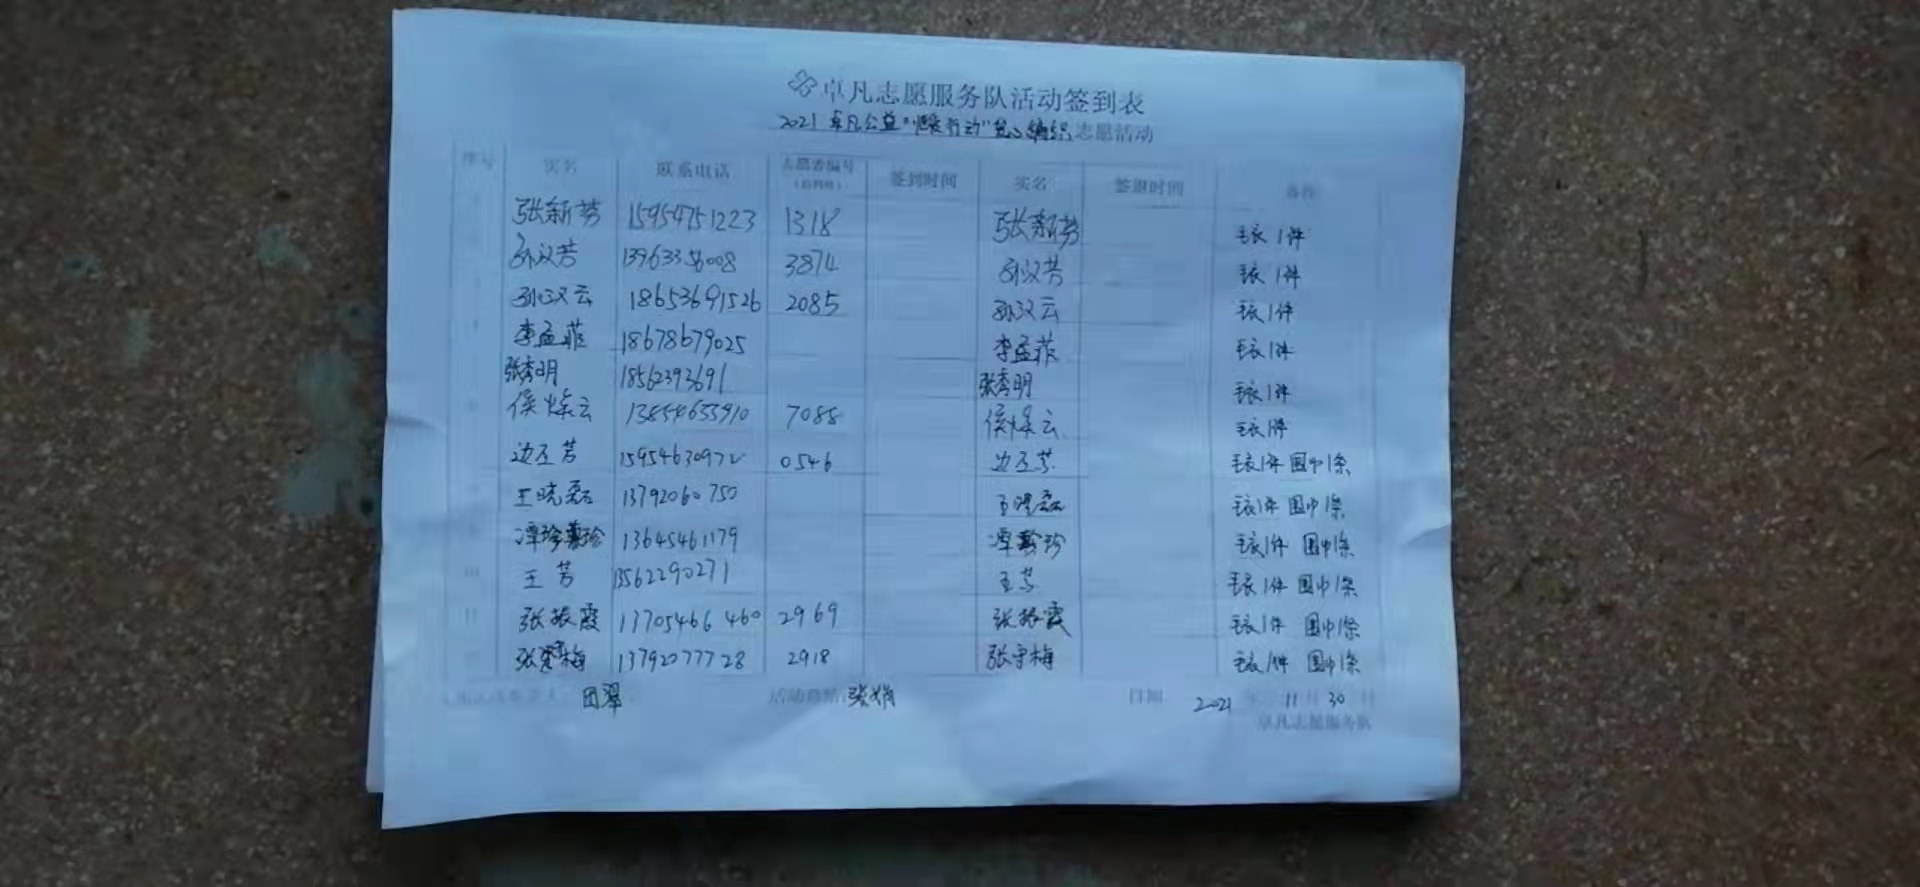 卓凡志愿服务队活动签到表
2021 卓凡公益"暖冬行动"爱心编织志愿活动
序号 实名 联系电话 志愿者编号 签到时间 实名 签退时间 备注
张新芳 15954751223 1318 张新芳 毛衣1件
孙汉芳 13963356008 3874 孙汉芳 毛衣1件
孙汉云 18653691526 2085 孙汉云 毛衣1件
李孟菲 18678679025 李孟菲 毛衣1件
张秀明 18562393691 张秀明 毛衣1件
侯焕云 13854655910 7088 侯焕云 毛衣1件
边玉芳 15954630972 0546 边玉芳 毛衣1件 围巾1条
王晓磊 13792060750 王晓磊 毛衣1件 围巾1条
13645461179 毛衣1件 围巾1条
10 王芳 13562290271 王芳 毛衣1件 围巾1条
11 张振霞 13705466460 2969 张振霞 毛衣1件 围巾1条
张 梅 13792077728 2918 张 梅 毛衣1件 围巾1条
田翠 活动总结 张娟 日期 2021 年 11 月 30 日
卓凡志愿服务队